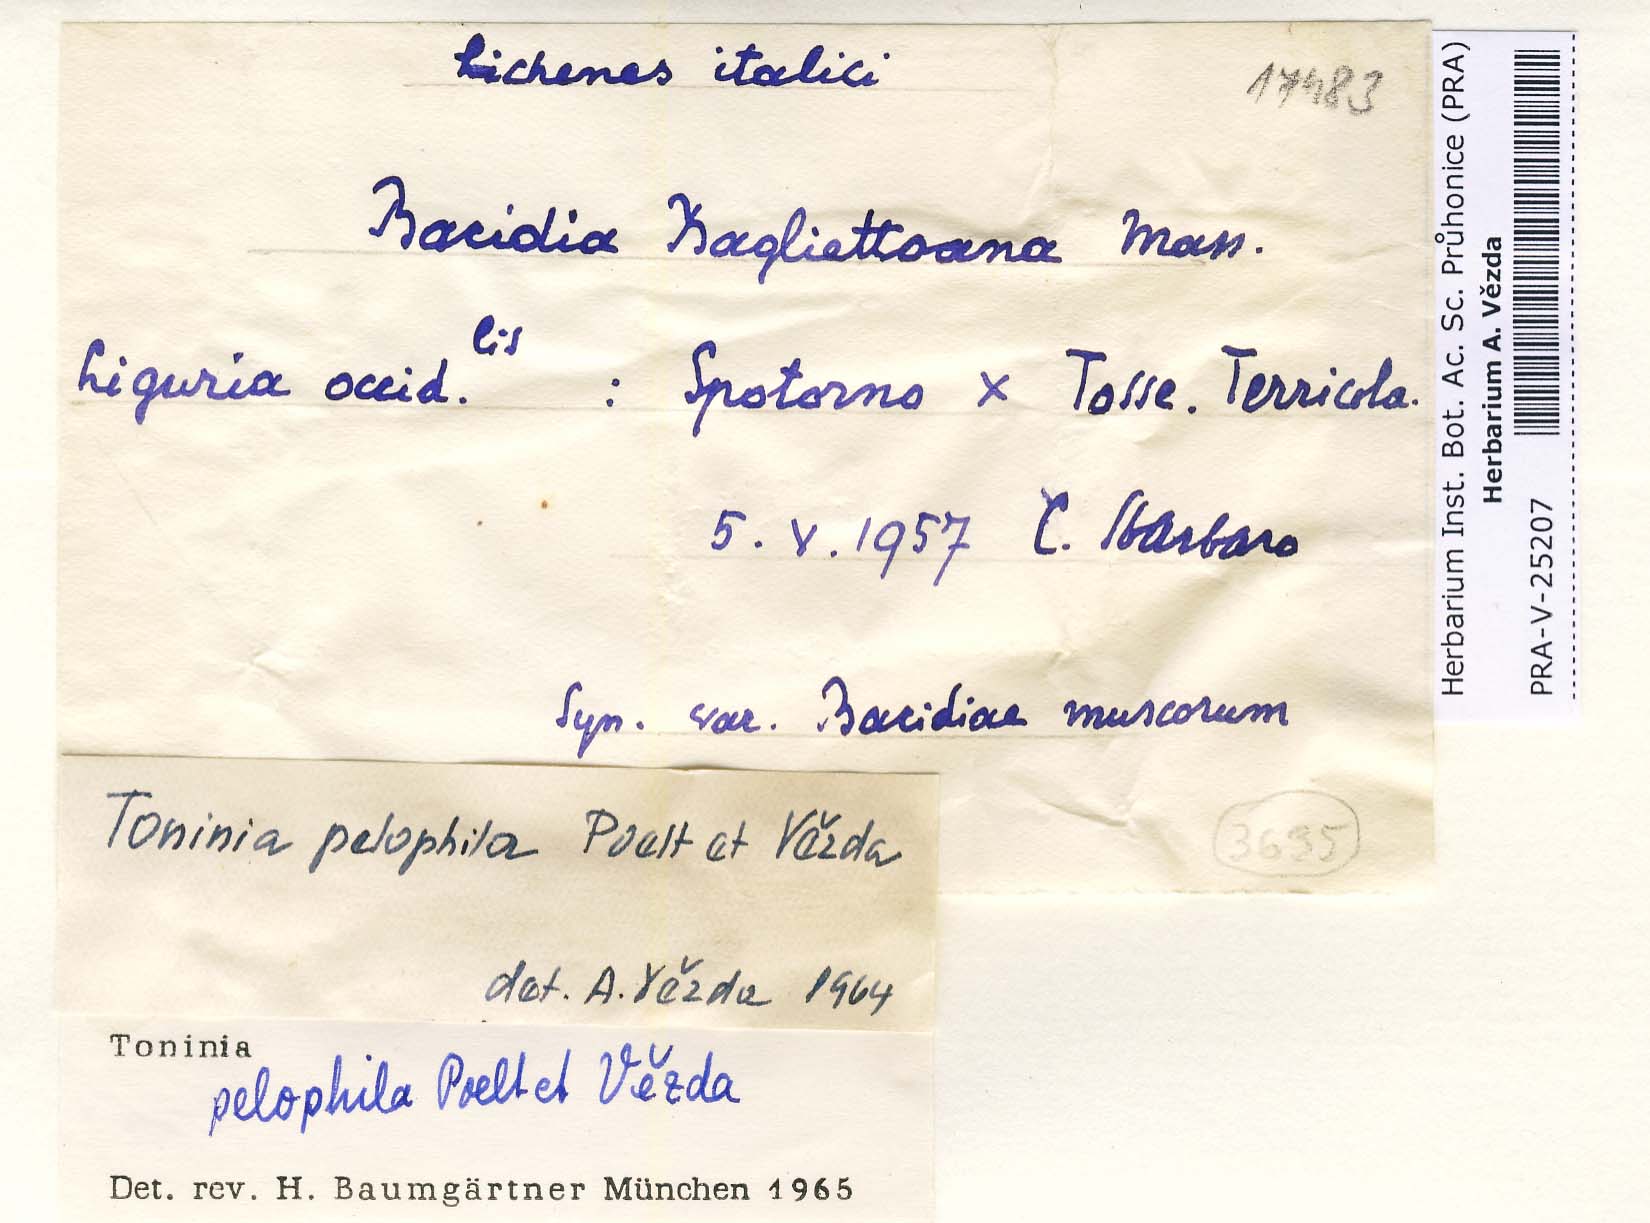 Lichenes italici
17483
Bacidia Bagliettoana Mass.
Liguria occid.lis : Spotorno x Tosse. Terricola.
5. V. 1957 C. Sbarbaro
Syn. var. Bacidiae muscorum
3695
Toninia pelophila Poelt et Vězda
det. A. Vězda 1964
Toninia
pelophila Poelt et Vězda
Det. rev. H. Baumgärtner München 1965
Herbarium Inst. Bot. Ac. Sc. Průhonice (PRA)
Herbarium A. Vězda
PRA-V-25207